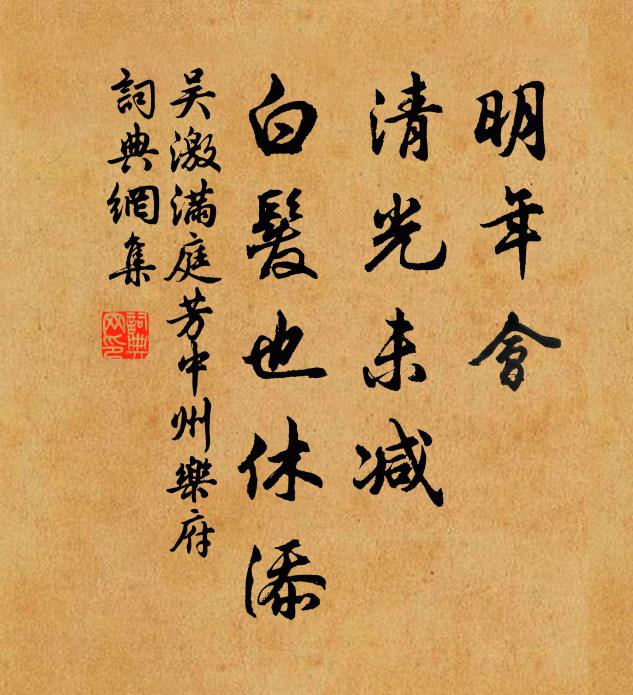 明年會
清光未减
白髮也休添
吴激滿庭芳中州樂府
詞典網集
詞典網印